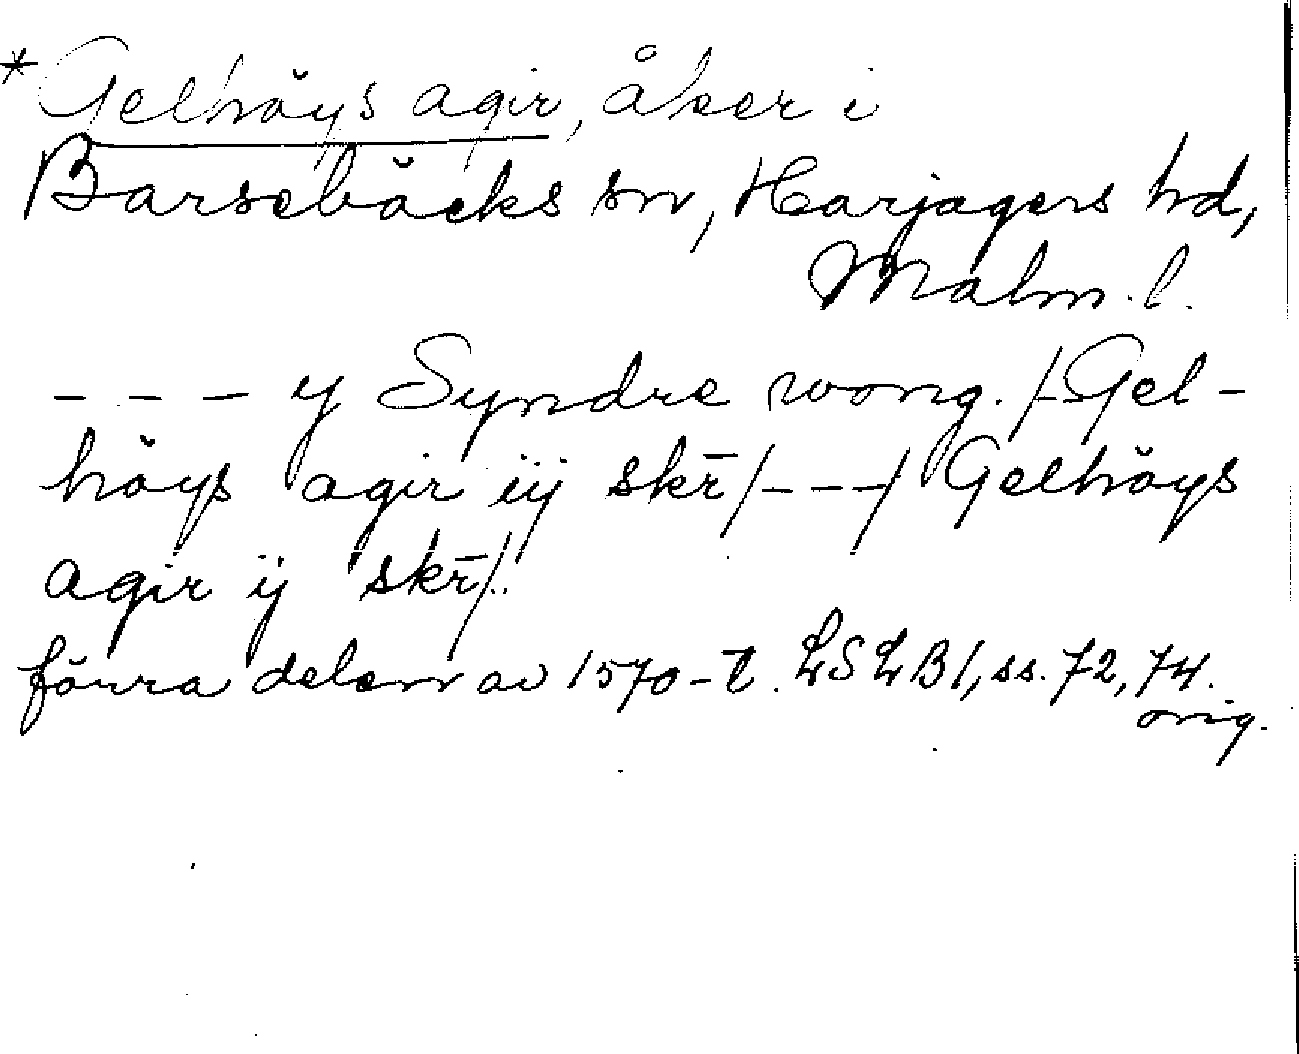 *Gelhöys agir, åker i
Barsebäcks sn, Harjagers hd,
Malm. l.
- - - y Syndre wong. /Gel-
höys agir iij skr̄/---/ Gelhöys
agir ij skr̄/.
förra delen av 1570-t. LSLB1, ss. 72, 74.
orig.